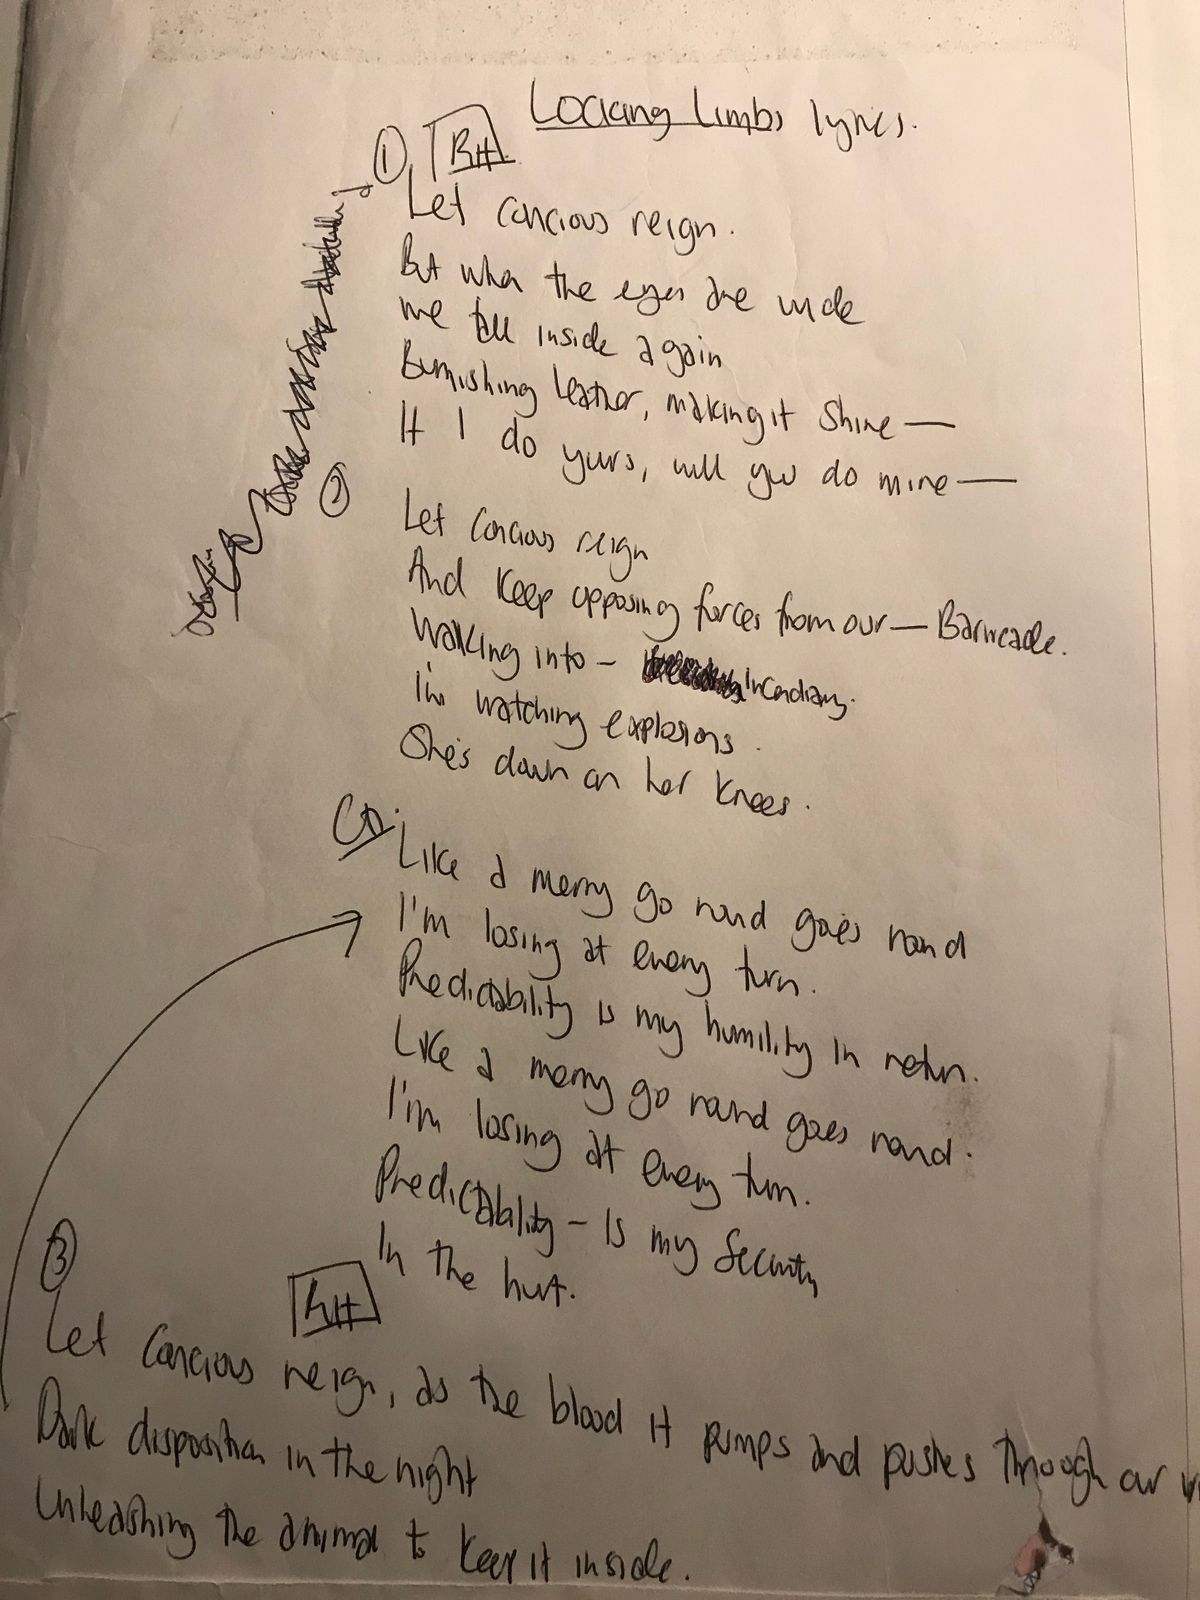 Locking Limbs lyrics.
① RH
Let concious reign.
But when the eyes are wide
we fall inside again
Burnishing leather, making it shine —
If I do yours, will you do mine —
②
Let concious reign
And keep opposing forces from our — Barricade.
Walking into — incendiary.
I'm watching explosions.
She's down on her knees.
Like a merry go round goes round
I'm losing at every turn.
Predictability is my humility in return.
Like a merry go round goes round.
I'm losing at every turn.
Predictability — is my security
In the hurt.
③
Let concious reign, as the blood it pumps and pushes through our
Dark disposition in the night
Unleashing the animal to keep it inside.